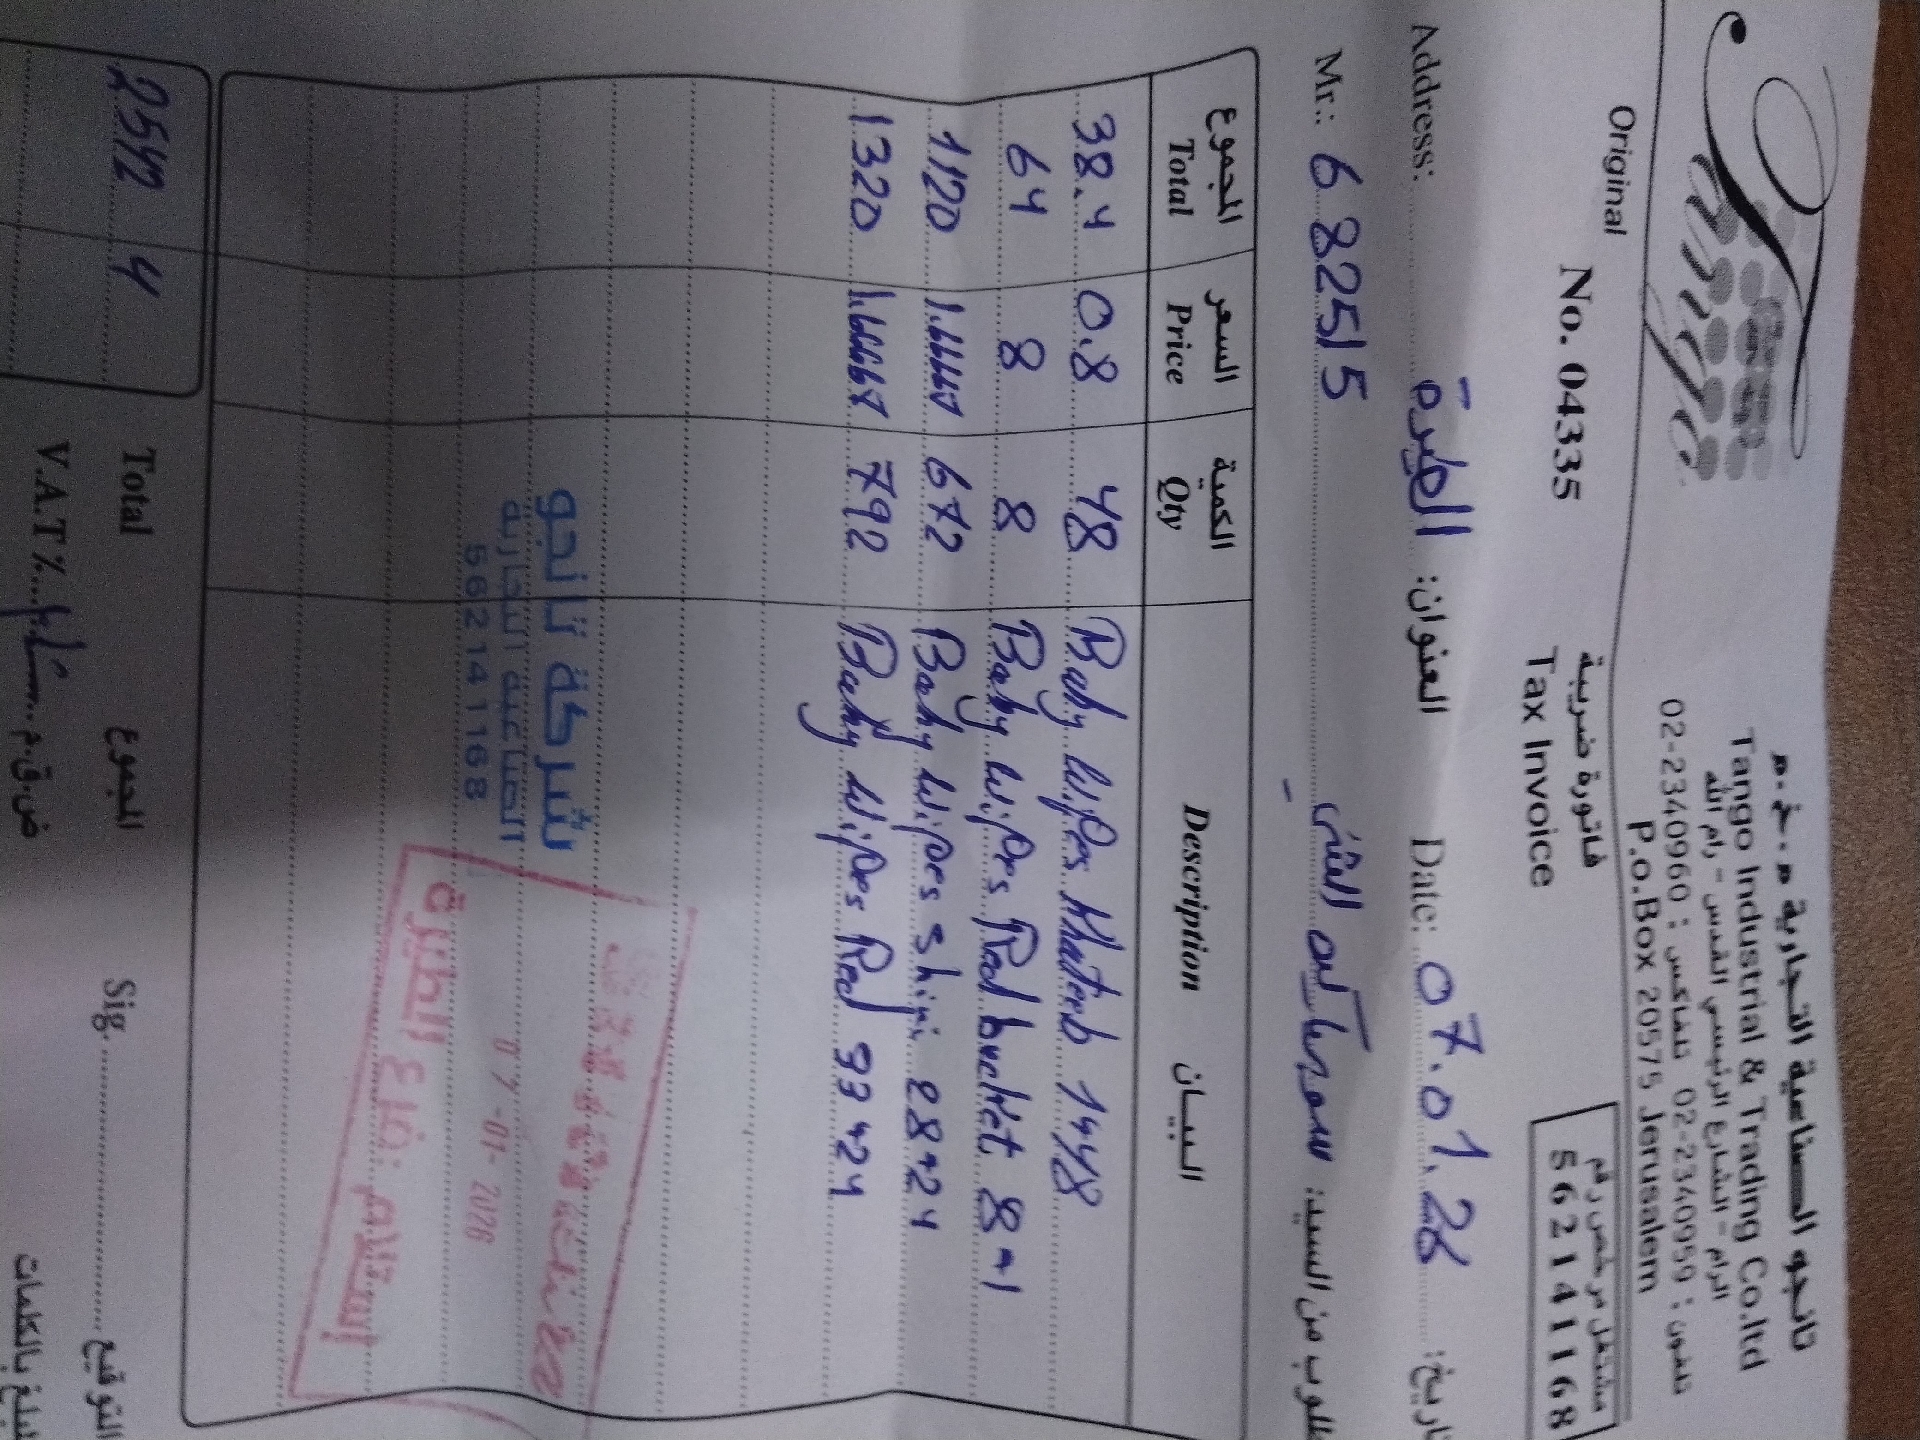 تانجو الصناعية التجارية م.خ.م
Tango Industrial & Trading Co.ltd
الرام - الشارع الرئيسي القدس - رام الله
تلفون : 02-2340959 تلفاكس : 02-2340960
P.o.Box 20575 Jerusalem
Tango
Original
No. 04335
فاتورة ضريبية
Tax Invoice
مشتغل مرخص رقم
562141168
Address: الطيرة العنوان:
Date: 07.01.26
Mr.: 682515
المجموع السعر الكمية البيـــان
Total Price Qty Description
38.4 0.8 48 Baby Wipes Khateeb 1*48
64 8 8 Baby Wipes Red bucket 8*1
1120 1.66667 672 Baby Wipes Shini 28*24
1320 1.66667 792 Baby Wipes Red 33*24
شركة تانجو
الصناعية التجارية
562141168
07-01-2026
إستلام: فرع الطيرة
2542 4 Total المجموع Sig. التوقيع
V.A.T % ض.ق.م بالكلمات